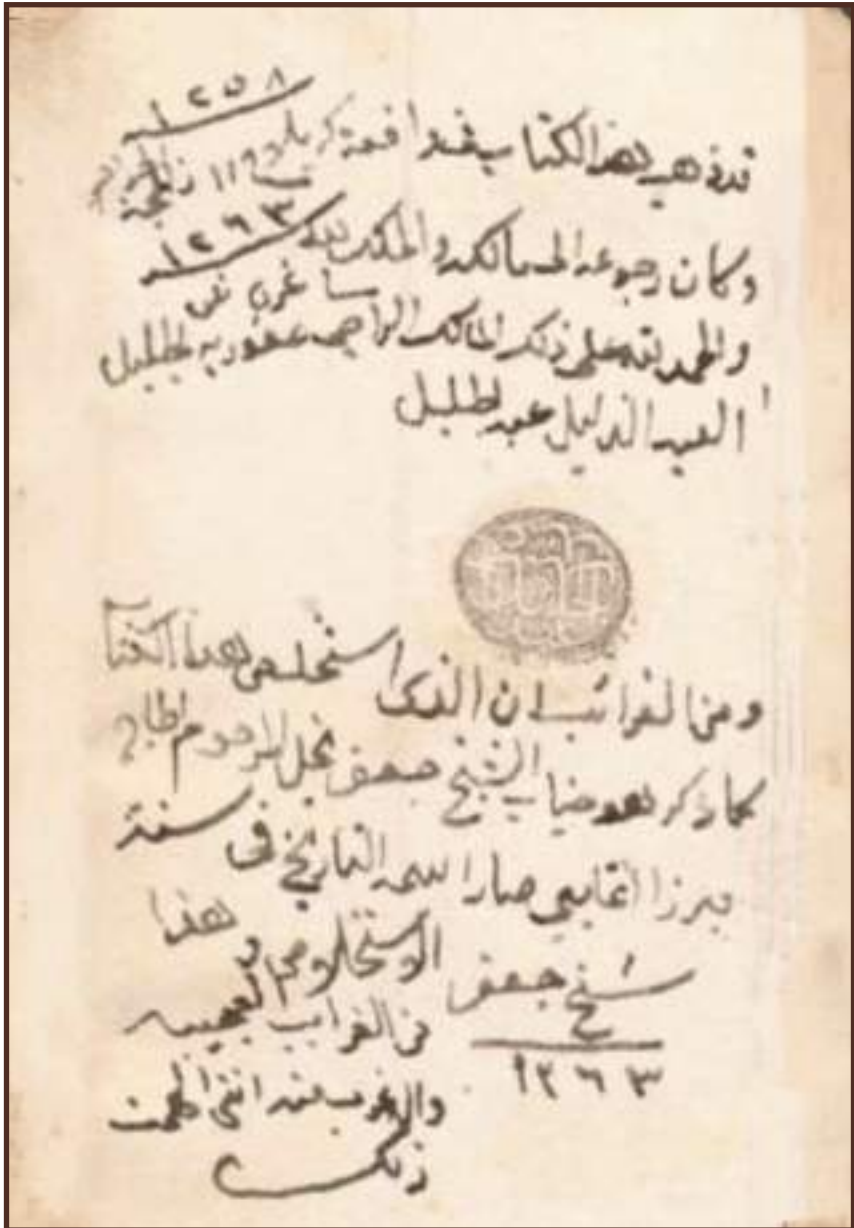 ١٢٥٨
قد ذهب هذا الكتاب في واقعة كربلاء ١١ ذالحجة
وكان رجوعه الى مالكه والملك لله ١٢٦٣
والحمد لله على ذلك المالك الراجي عفو ربه الجليل
العبد الذليل عبد الجليل
ومن الغرائب ان الذي استخلص هذا الكتاب
كما ذكر هو جناب الشيخ جعفر نجل المرحوم الحاج
ميرزا صار اسمه التاريخ في سنة
الاستخلاص وهذا
شيخ جعفر
١٢٦٣
من الغرايب العجيبه
والاغرب منه انني الهمت
ذلك